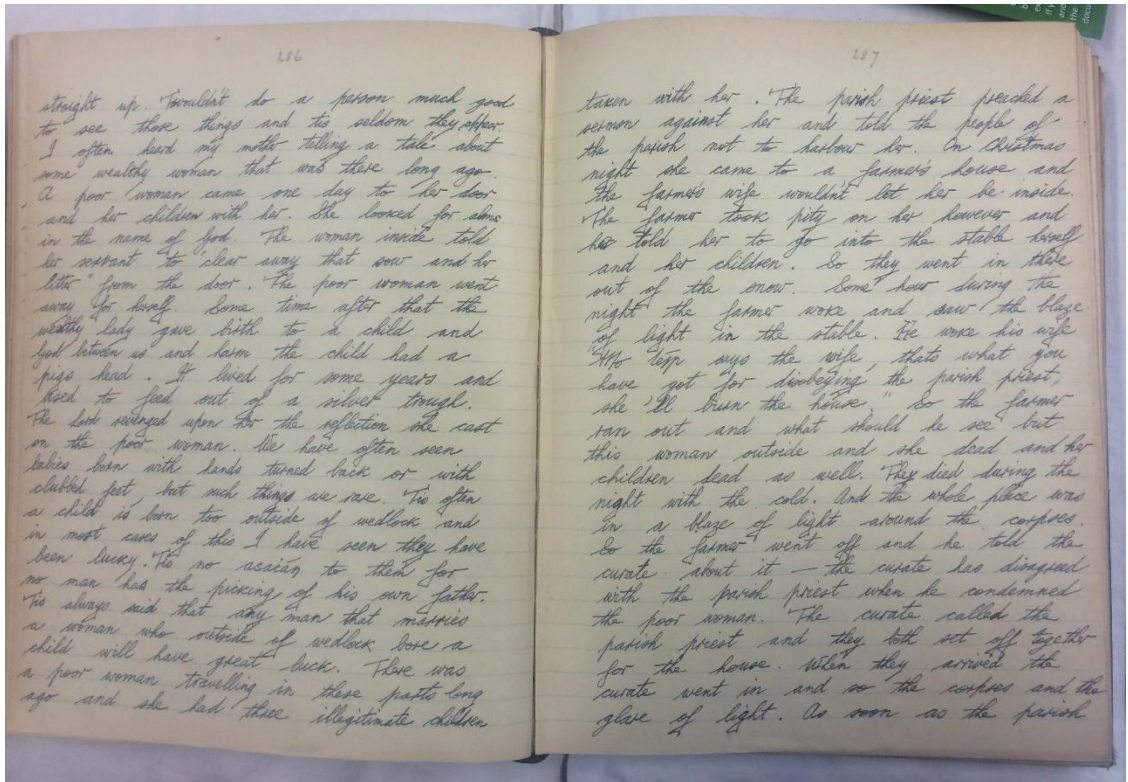 286
straight up. Twouldn't do a person much good
to see those things and tis seldom they appear.
I often heard my mother telling a tale about
some wealthy woman that was there long ago.
A poor woman came one day to her door
and her children with her. She looked for alms
in the name of God. The woman inside told
her servant to "clear away that sow and her
litter" from the door. The poor woman went
away for herself. Some time after that the
wealthy lady gave birth to a child and
God between us and harm the child had a
pigs head. It lived for some years and
used to feed out of a silver trough.
The Lord revenged upon her the reflection she cast
on the poor woman. We have often seen
babies born with hands turned back or with
clubbed feet, but such things are rare. Tis often
a child is born too outside of wedlock and
in most cases of this I have seen they have
been lucky. Tis no asacán to them for
no man has the picking of his own father.
Tis always said that any man that marries
a woman who outside of wedlock bore a
child will have great luck. There was
a poor woman travelling in these parts long
ago and she had three illegitimate children
287
taken with her. The parish priest preached a
sermon against her and told the people of
the parish not to harbour her. On Christmas
night she came to a farmer's house and
the farmer's wife wouldn't let her be inside.
The farmer took pity on her however and
he told her to go into the stable herself
and her children. So they went in there
out of the snow. Some how during the
night the farmer woke and saw the blaze
of light in the stable. He woke his wife
says the wife, thats what you
have got for disobeying the parish priest,
she 'll burn the house." So the farmer
ran out and what should he see but
this woman outside and she dead and her
children dead as well. They died during the
night with the cold. And the whole place was
in a blaze of light around the corpses.
So the farmer went off and he told the
curate about it — the curate has disagreed
with the parish priest when he condemned
the poor woman. The curate called the
parish priest and they both set off together
for the house. When they arrived the
curate went in and so the corpses and the
glare of light. As soon as the parish